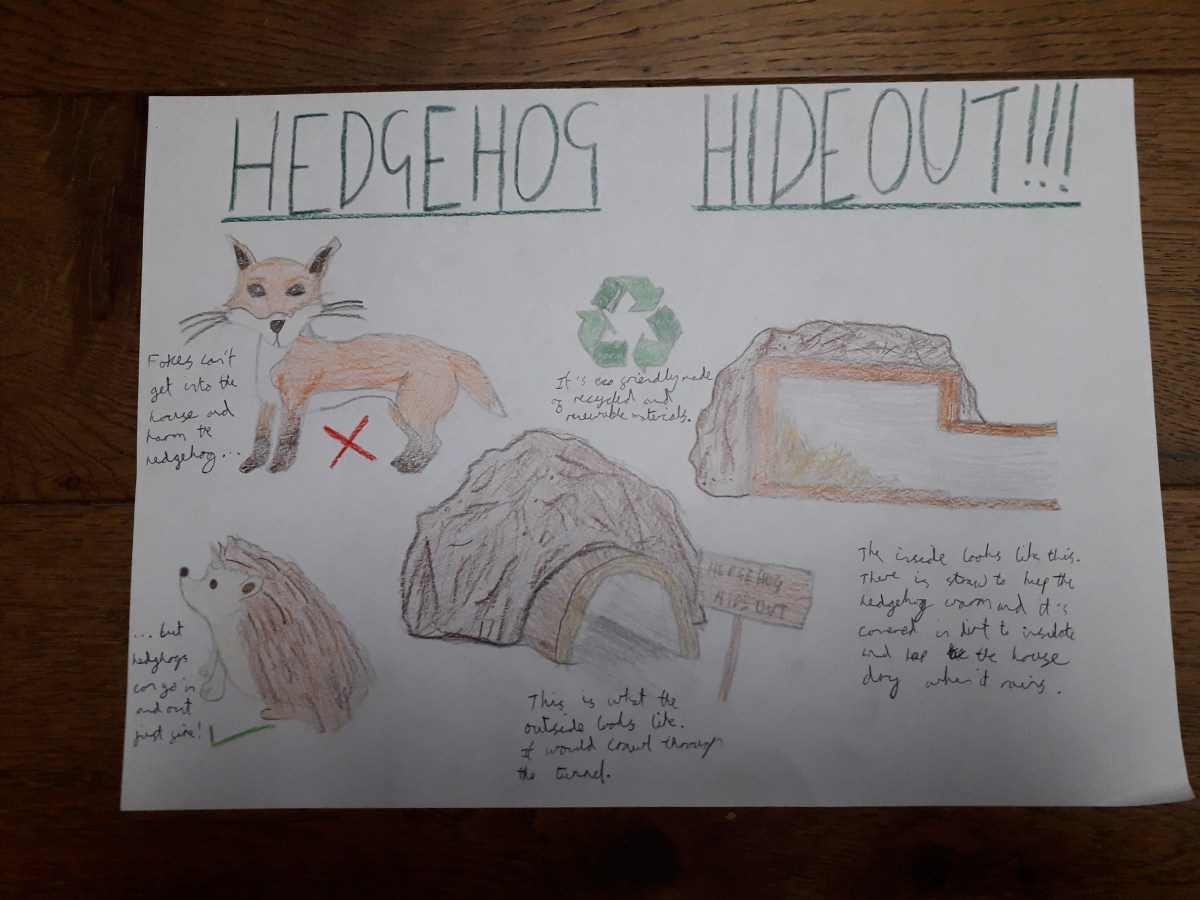 HEDGEHOG HIDEOUT!!!
Foxes can't
get into the
house and
harm the
hedgehog...
It's eco friendly made
of recycled and
renewable materials.
HEDGEHOG
HIDEOUT
... but
hedgehogs
can go in
and out
just fine!
This is what the
outside looks like.
It would crawl through
the tunnel.
The inside looks like this.
There is straw to keep the
hedgehog warm and it's
covered in dirt to insulate
and keep the house
dry when it rains.